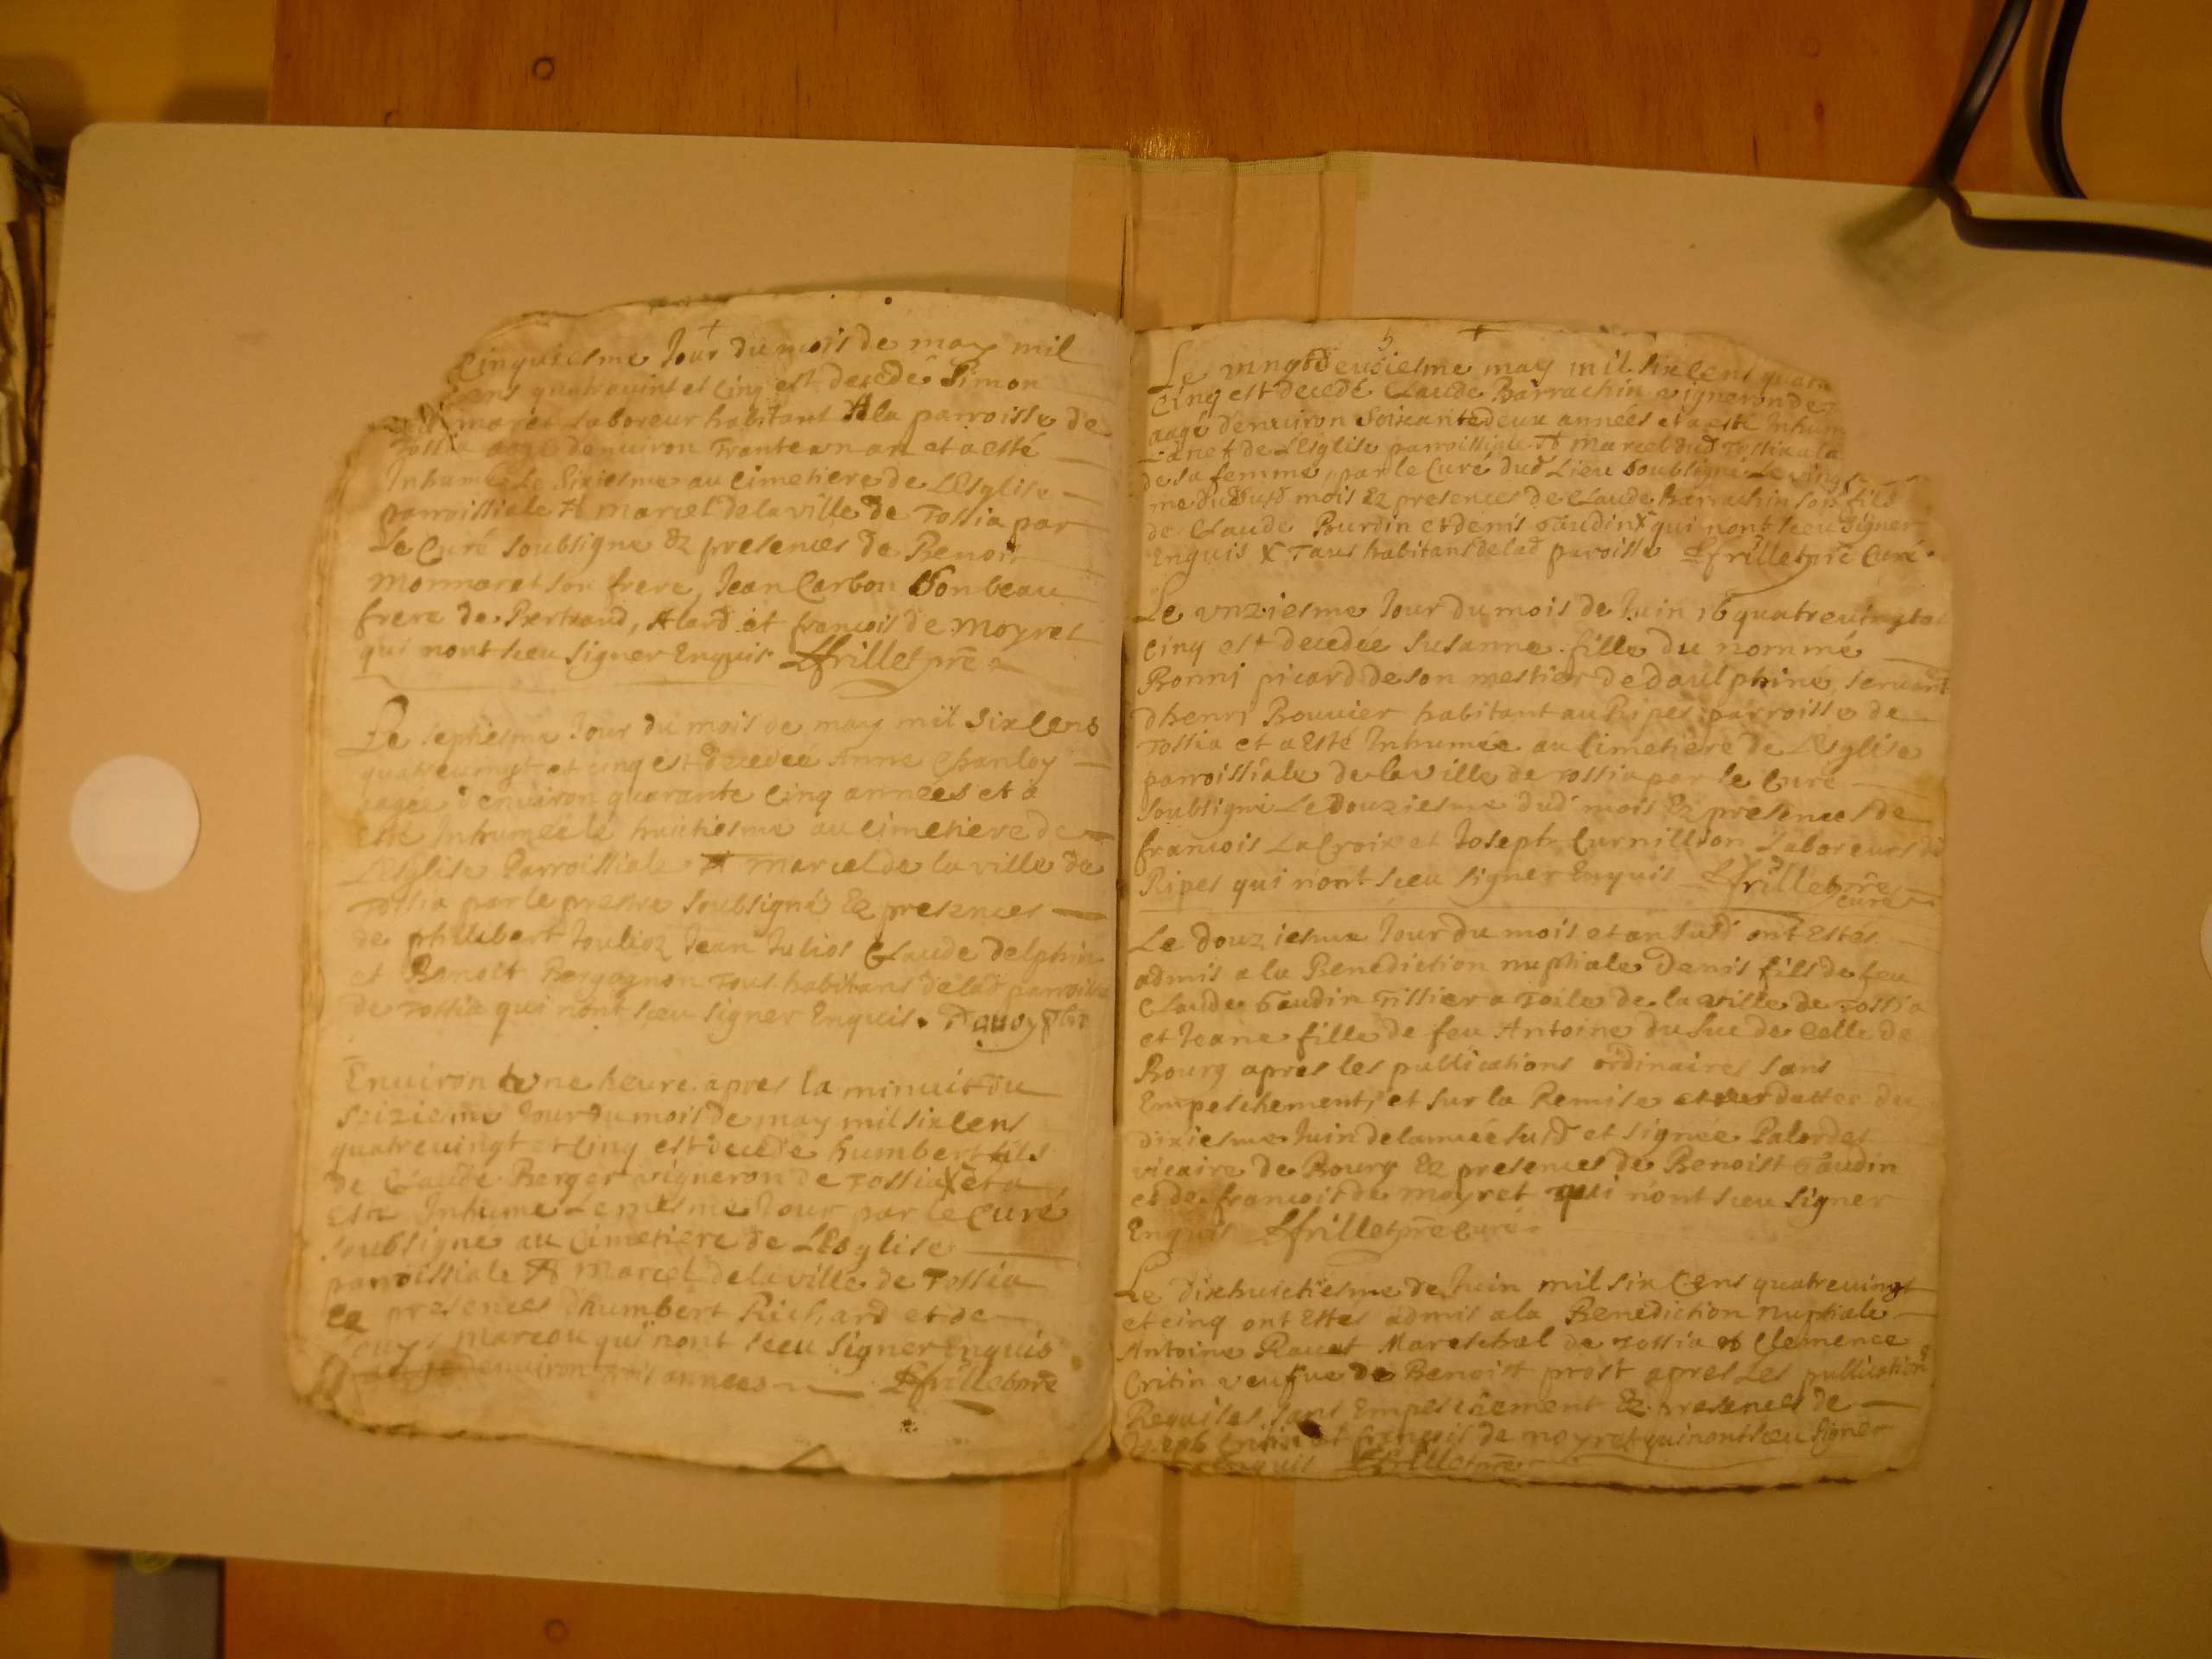 Cinquiesme Jour du mois de may mil
Cens quatrevint et Cinq est decedé Simon
maret Laboreur habitant A la parroisse de
Tossia aagé denviron Trante un an et a esté
Inhumé Le Sixiesme au Cimetiere de LEsglise
parroissiale St Marcel de la ville de Tossia par
Le Curé soubsigné Ez presences de Benoit
Monmaret son frere, Jean Carbon Son beau
frere de Bertrand, Alard et francois de Moyret
qui nont sceu signer Enquis Lfrillet pre
Le septiesme Jour du mois de may mil Six Cens
quatrevingt et cinq est decedée Anne Chanloy
aagee denviron quarante Cinq années et a
esté Inhumée le huitiesme au Cimetiere de
LEsglise Parroissiale St Marcel de la ville de
Tossia par le prestre soubsigné Ez presences
de phillibert Joulioz Jean Julios Claude Delphin
et Benoit Borgognon Tous habitans de lad parroisse
de Tossia qui nont sceu signer Enquis.
Environ une heure apres la minuit du
Seizieme Jour du mois de may mil six Cens
quatrevingt et Cinq est decede humbert fils
de Claude Berger vigneron de Tossia X et a
esté Inhumé Le mesme Jour par le Curé
soubsigné au Cimetiere de LEsglise
parroissiale St Marcel de la ville de Tossia
Ez presences dhumbert Richard et de
Louys Mareou qui nont sceu signer Enquis
aagé denviron trois annees Lfrillet pre
5
Le vingtdeusiesme may mil six Cens quatr
Cinq est decedé Claude Barrachin vigneron de
aagé denviron Soixante deux années et a esté Inhum
La nef de LEsglise parroissiale St Marcel dud Tossia a la
de sa femme, par le Curé dud Lieu Soubsigné Le ving
me du susd mois Ez presences de Claude Barrachin son fils
de Claude Bourdin et denis Gaudin X qui nont sceu signer
Enquis X Tous habitans de lad paroisse Lfrillet pre Curé
Le vnziesme Jour du mois de Juin 16 quatrevingtet
Cinq est decedee Susanne fille du nommé
Bonni picard de son mestier de daulphiné, servant
dhenri Bouvier habitant au Ripes parroisse de
Tossia et a Esté Inhumée au Cimetiere de LEsglise
parroissiale de la ville de Tossia par le Curé
Soubsigné Le Douziesme dud mois Ez presences de
francois LaCroix et Joseph Curnillion Laboreurs du
Ripes qui n'ont sceu signer Enquis Lfrillet pre
curé
Le Douziesme Jour du mois et an susd ont Estés
admis a la Benediction nuptiale Denis fils de feu
Claude Gaudin Tissier a Toile de la ville de Tossia
et Jeane fille de feu Antoine du Suc de Celle de
Bourg apres les publications ordinaires sans
Empeschement, et sur la Remise dattee du
dixiesme Juin de lannée susd et signée Palordet
vicaire de Bourg Ez presences de Benoist Gaudin
et de francois de moyret qui n'ont sceu signer
Enquis Lfrillet pre Curé
Le dixhuictiesme de Juin mil six Cens quatrevingt
et cinq ont Estes admis a la Benediction Nuptiale
Antoine Ravat Mareschal de Tossia & Clemence
Critin veufve de Benoist prost apres Les publications
Requises sans Empeschement Ez presences de
Joseph Critin et francois de moyret qui nont sceu signer
Enquis Lfrillet pre